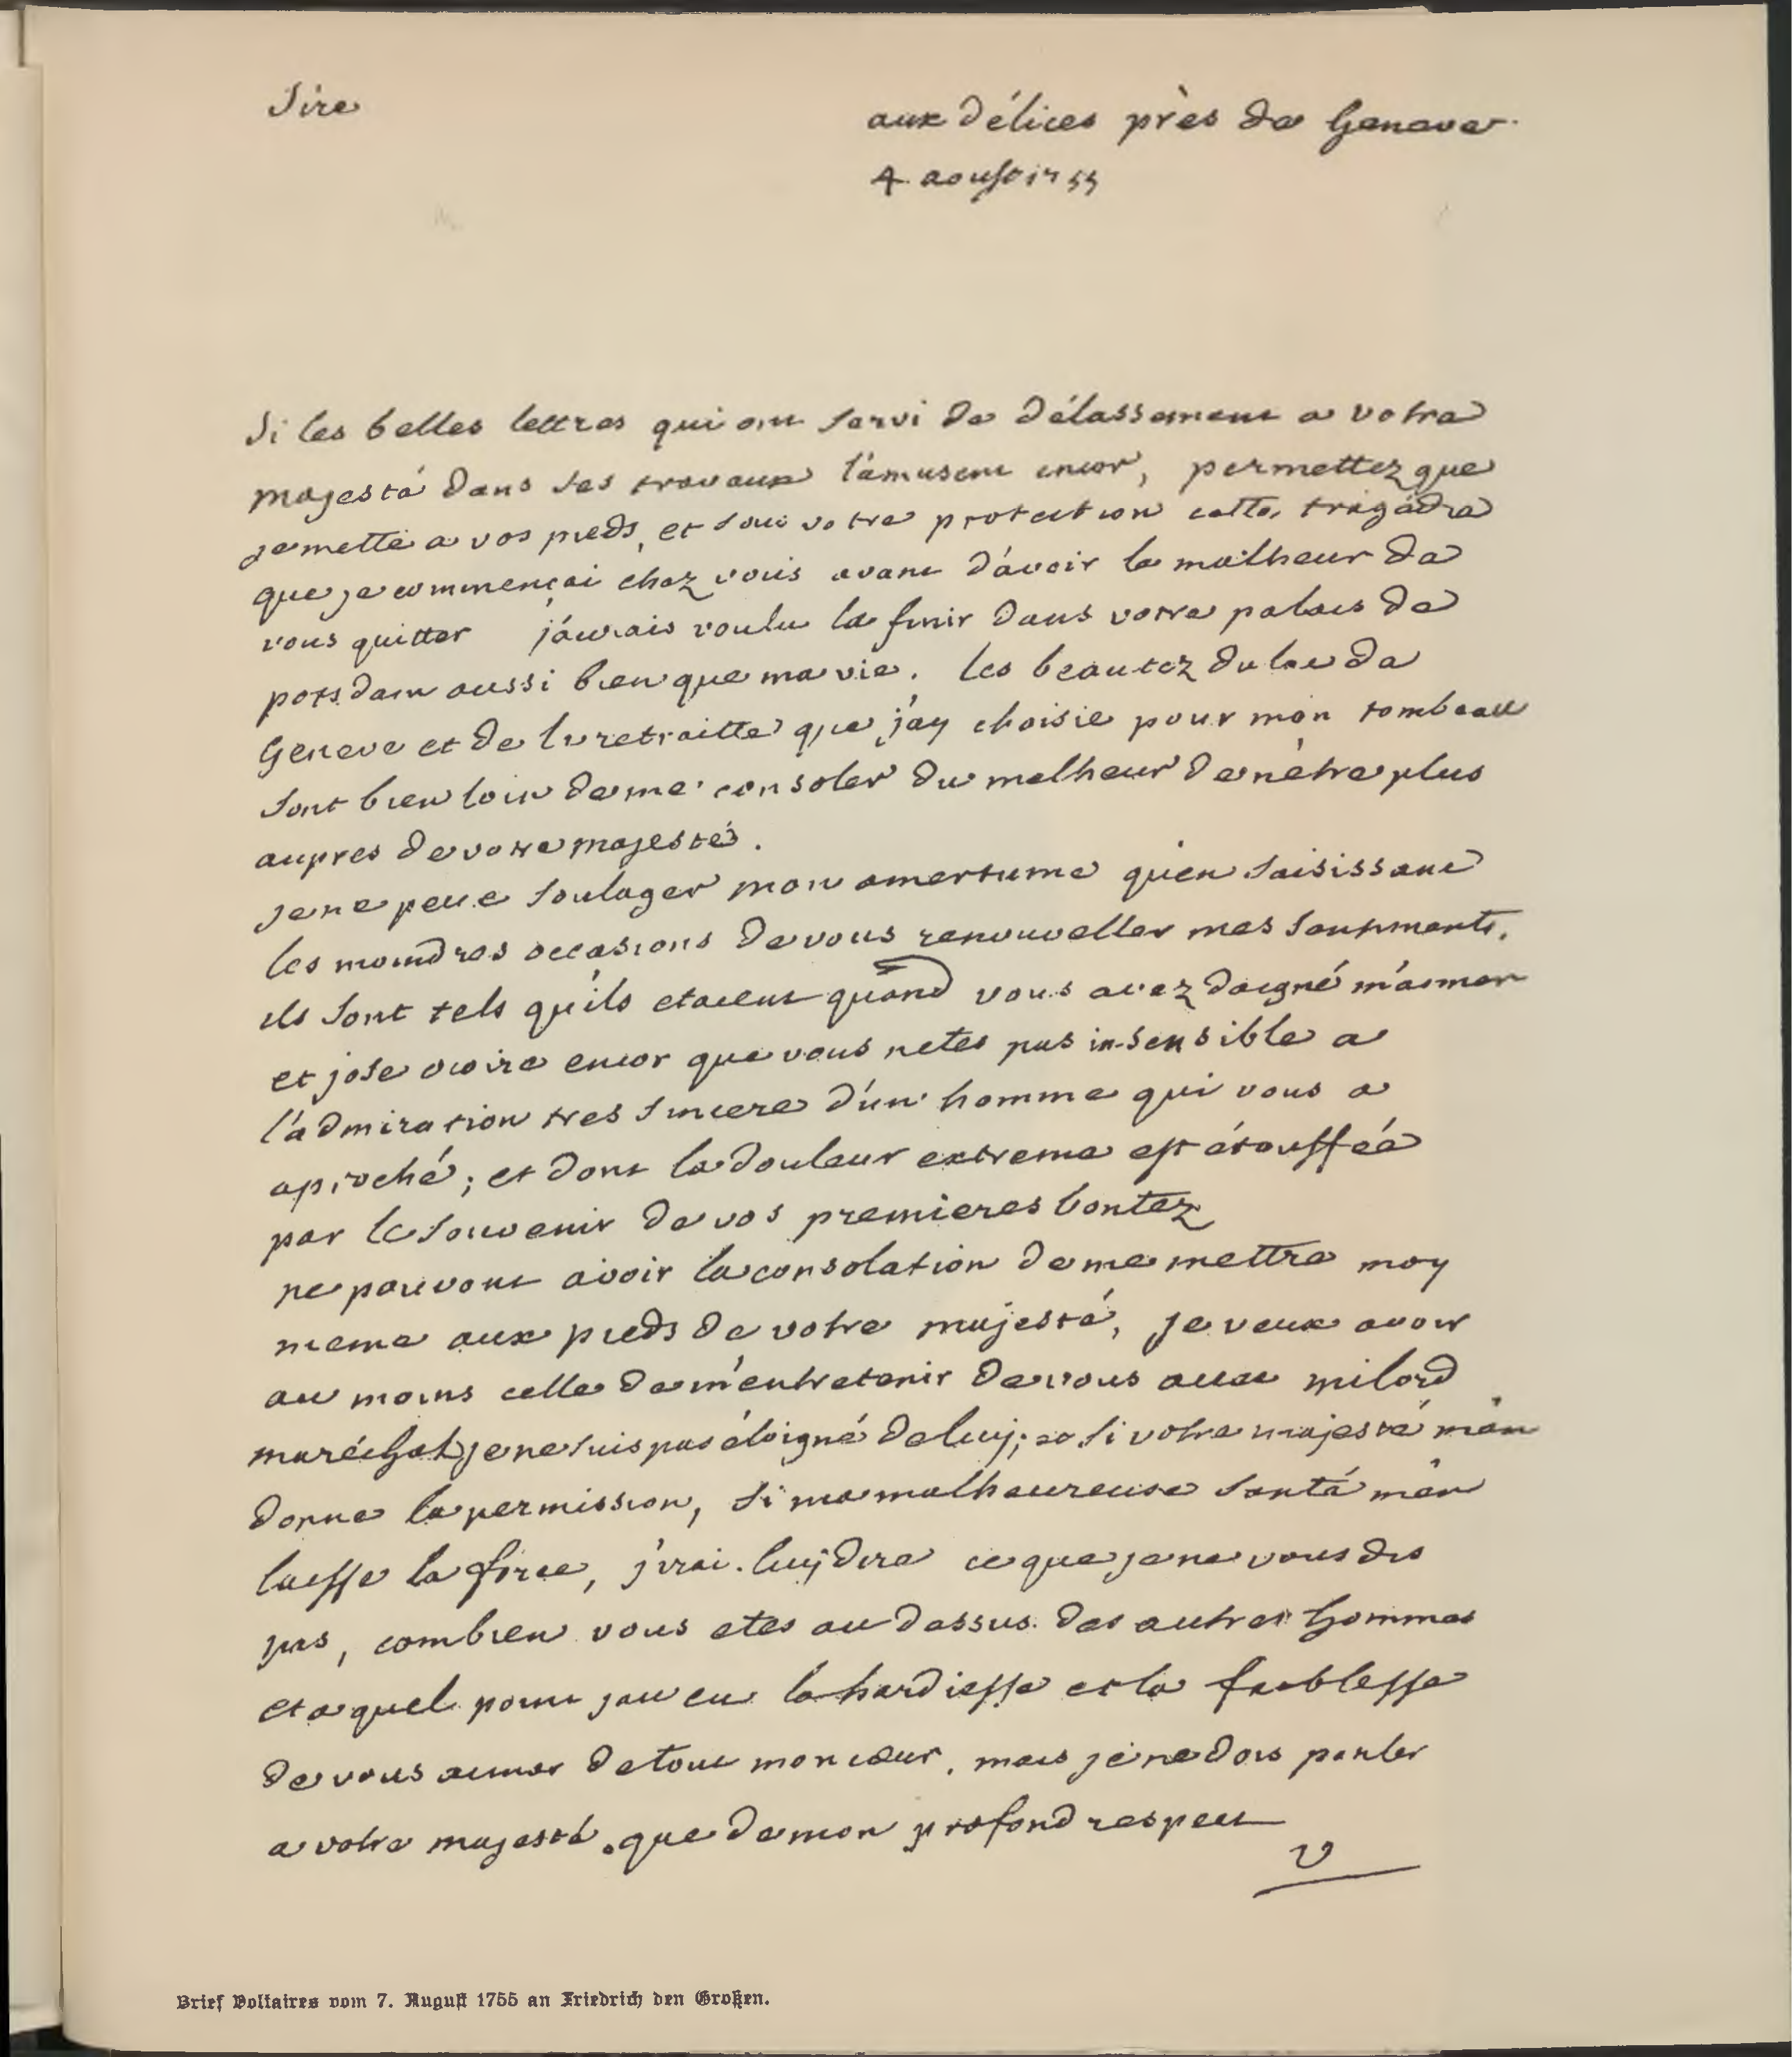 Sire
aux Délices près de Geneve
4 aoust 1755
Si les belles lettres qui ont servi de délassement a votre
majesté dans ses travaux l'amusent encor, permettez que
je mette a vos pieds, et sous votre protection cette tragédie
que je commençai chez vous avant d'avoir le malheur de
vous quitter j'aurais voulu la finir dans votre palais de
potsdam aussi bien que ma vie. les beautez du lac de
Geneve et de la retraitte que j'ay choisie pour mon tombeau
sont bien loin de me consoler du malheur de n'etre plus
aupres de votre majesté.
je ne peux soulager mon amertume qu'en saisissant
les moindres occasions de vous renouveller mes sentiments.
ils sont tels qu'ils etaient quand vous avez daigné m'aimer
et jose croire encor que vous netes pas insensible a
l'admiration tres sincere d'un homme qui vous a
aproché; et dont la douleur extreme est étouffée
par le souvenir de vos premieres bontez
ne pouvant avoir la consolation de me mettre moy
meme aux pieds de votre majesté, je veux avoir
au moins celle de m'entretenir de vous avec milord
maréchal je ne suis pas éloigné de luy; et si votre majesté m'en
donne la permission, si ma malheureuse santé m'en
laisse la force, j'irai luy dire ce que je ne vous dis
pas, combien vous etes au dessus des autres hommes
et a quel point jay eu la hardiesse et la faiblesse
de vous aimer de tout mon cœur, mais je ne dois parler
a votre majesté que de mon profond respect
V
Brief Voltaires vom 7. August 1755 an Friedrich den Großen.